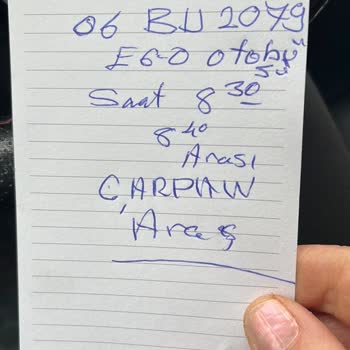 06 BU 2079
EGO otobü
sü
Saat 8 30
8 40
Arası
ÇARPAN
Araç